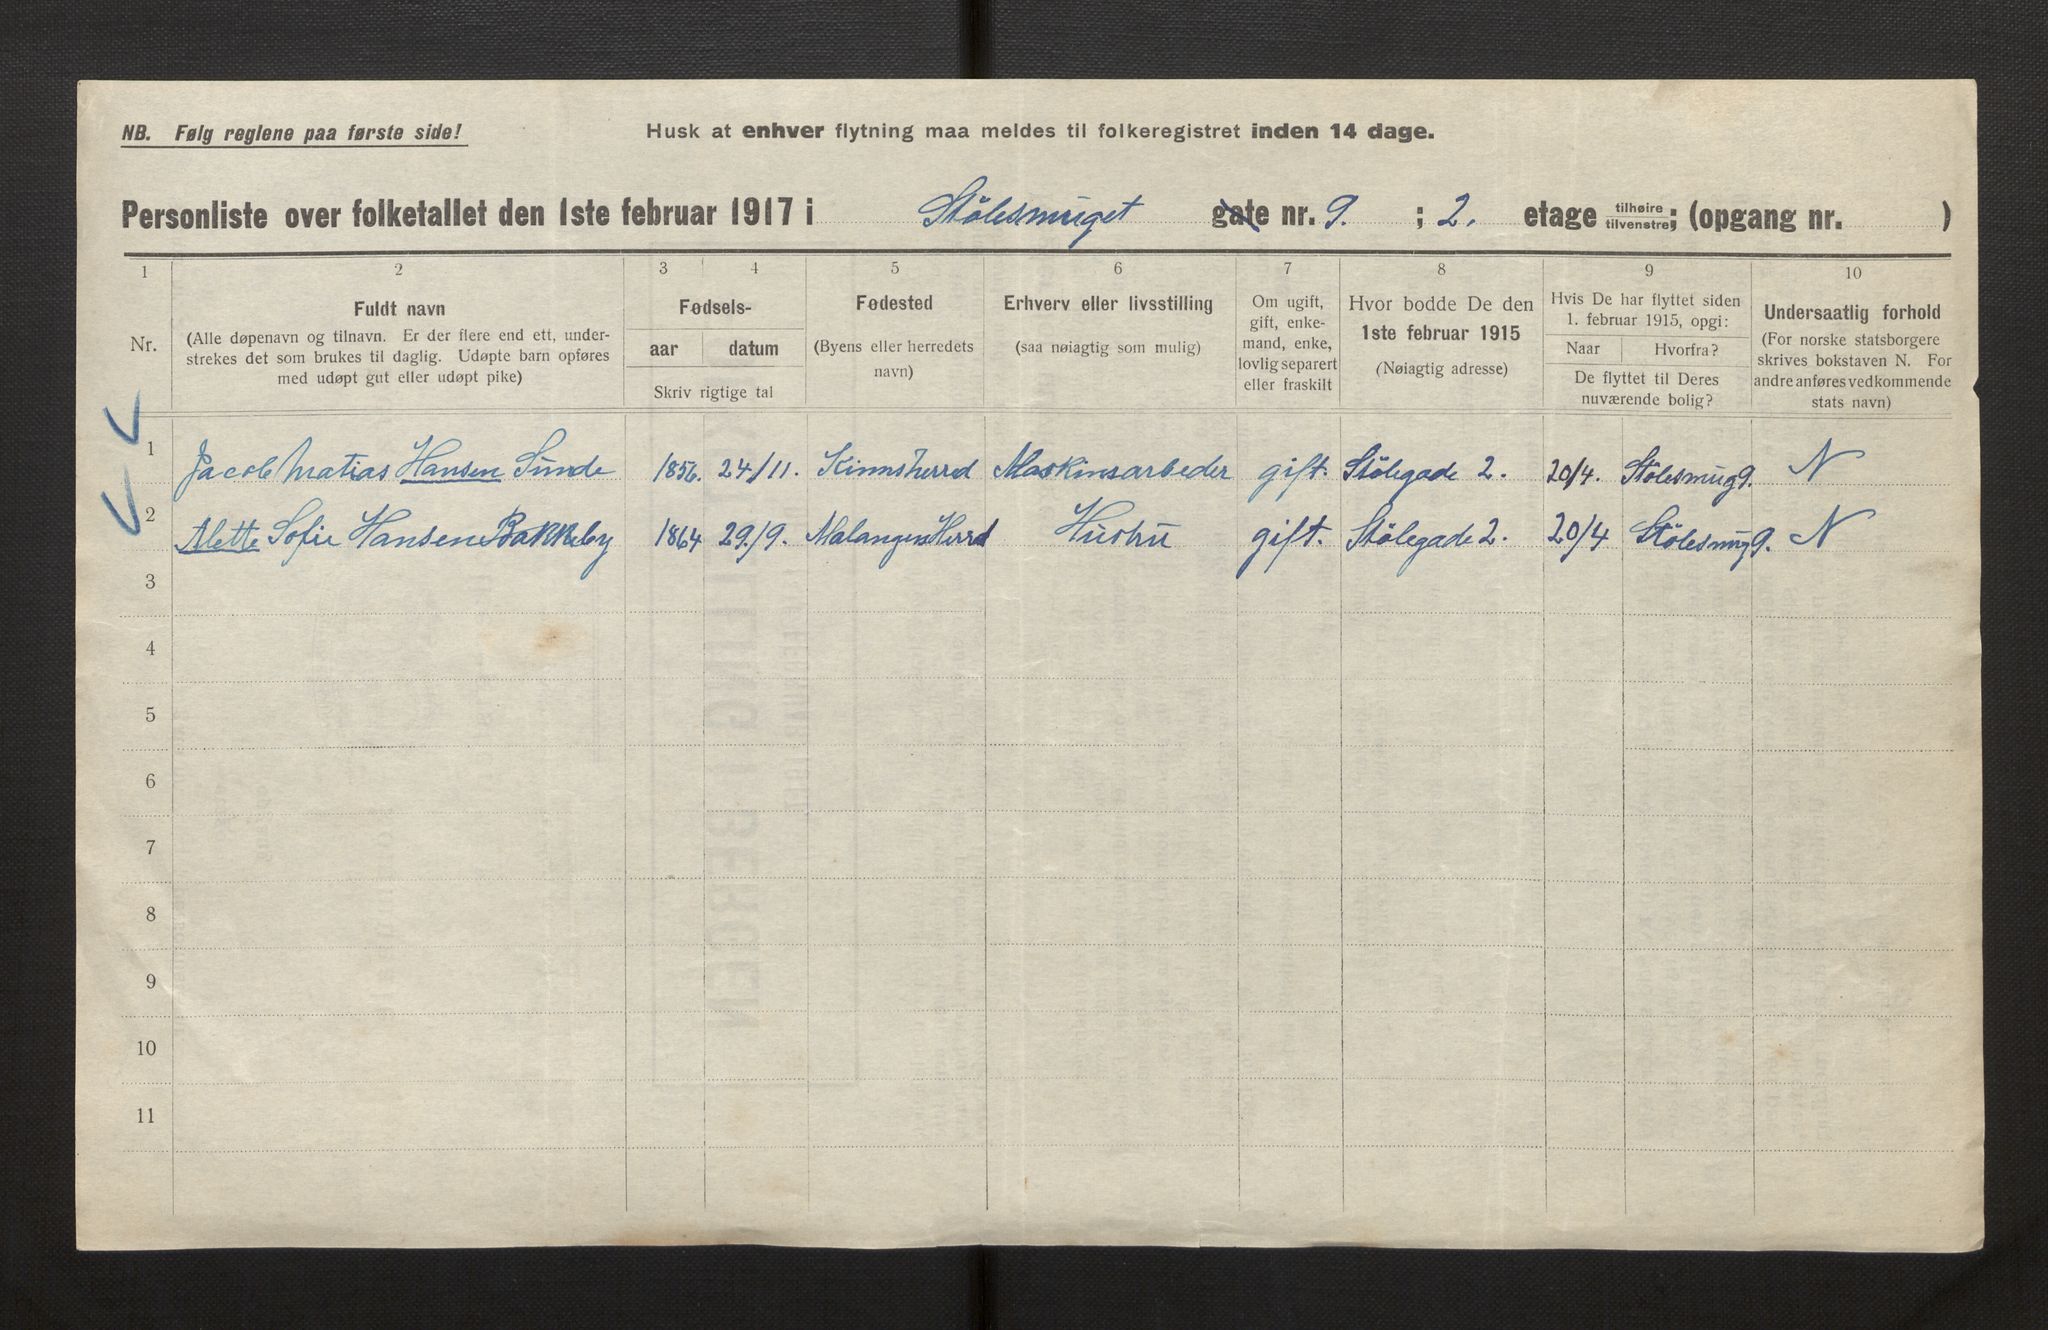 NB. Følg reglene paa første side!
Husk at enhver flytning maa meldes til folkeregistret inden 14 dage.
Personliste over folketallet den 1ste februar 1917 i Stölesmuget gate nr. 9. ; 2. etage tilhøire tilvenstre; (opgang nr. )
1 2 3 4 5 6 7 8 9 10
Nr.
Fuldt navn
(Alle døpenavn og tilnavn. Er der flere end ett, under-
strekes det som brukes til daglig. Udøpte barn opføres
med udøpt gut eller udøpt pike)
Fødsels-
aar datum
Skriv rigtige tal
Fødested
(Byens eller herredets
navn)
Erhverv eller livsstilling
(saa nøiagtig som mulig)
Om ugift,
gift, enke-
mand, enke,
lovlig separert
eller fraskilt
Hvor bodde De den
1ste februar 1915
(Nøiagtig adresse)
Hvis De har flyttet siden
1. februar 1915, opgi:
Naar Hvorfra?
De flyttet til Deres
nuværende bolig?
Undersaatlig forhold
(For norske statsborgere
skrives bokstaven N. For
andre anføres vedkommende
stats navn)
1 Jacob Matias Hansen Sunde 1856. 24/11. Kinnsherred Maskinsarbeder gift. Stölegade 2. 20/4. Stölesmug 9. N
2 Alette Sofie Hansen Bakkeby 1864 29./9. Malangen Herred Hustru gift. Stölegade 2. 20/4 Stölesmug 9. N
3
4
5
6
7
8
9
10
11